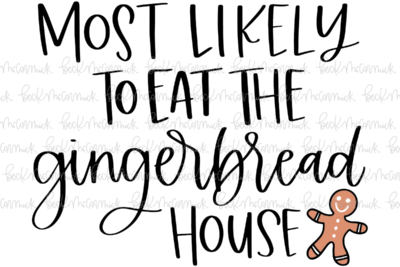 MOST LIKELY
TO EAT THE
gingerbread
HOUSE